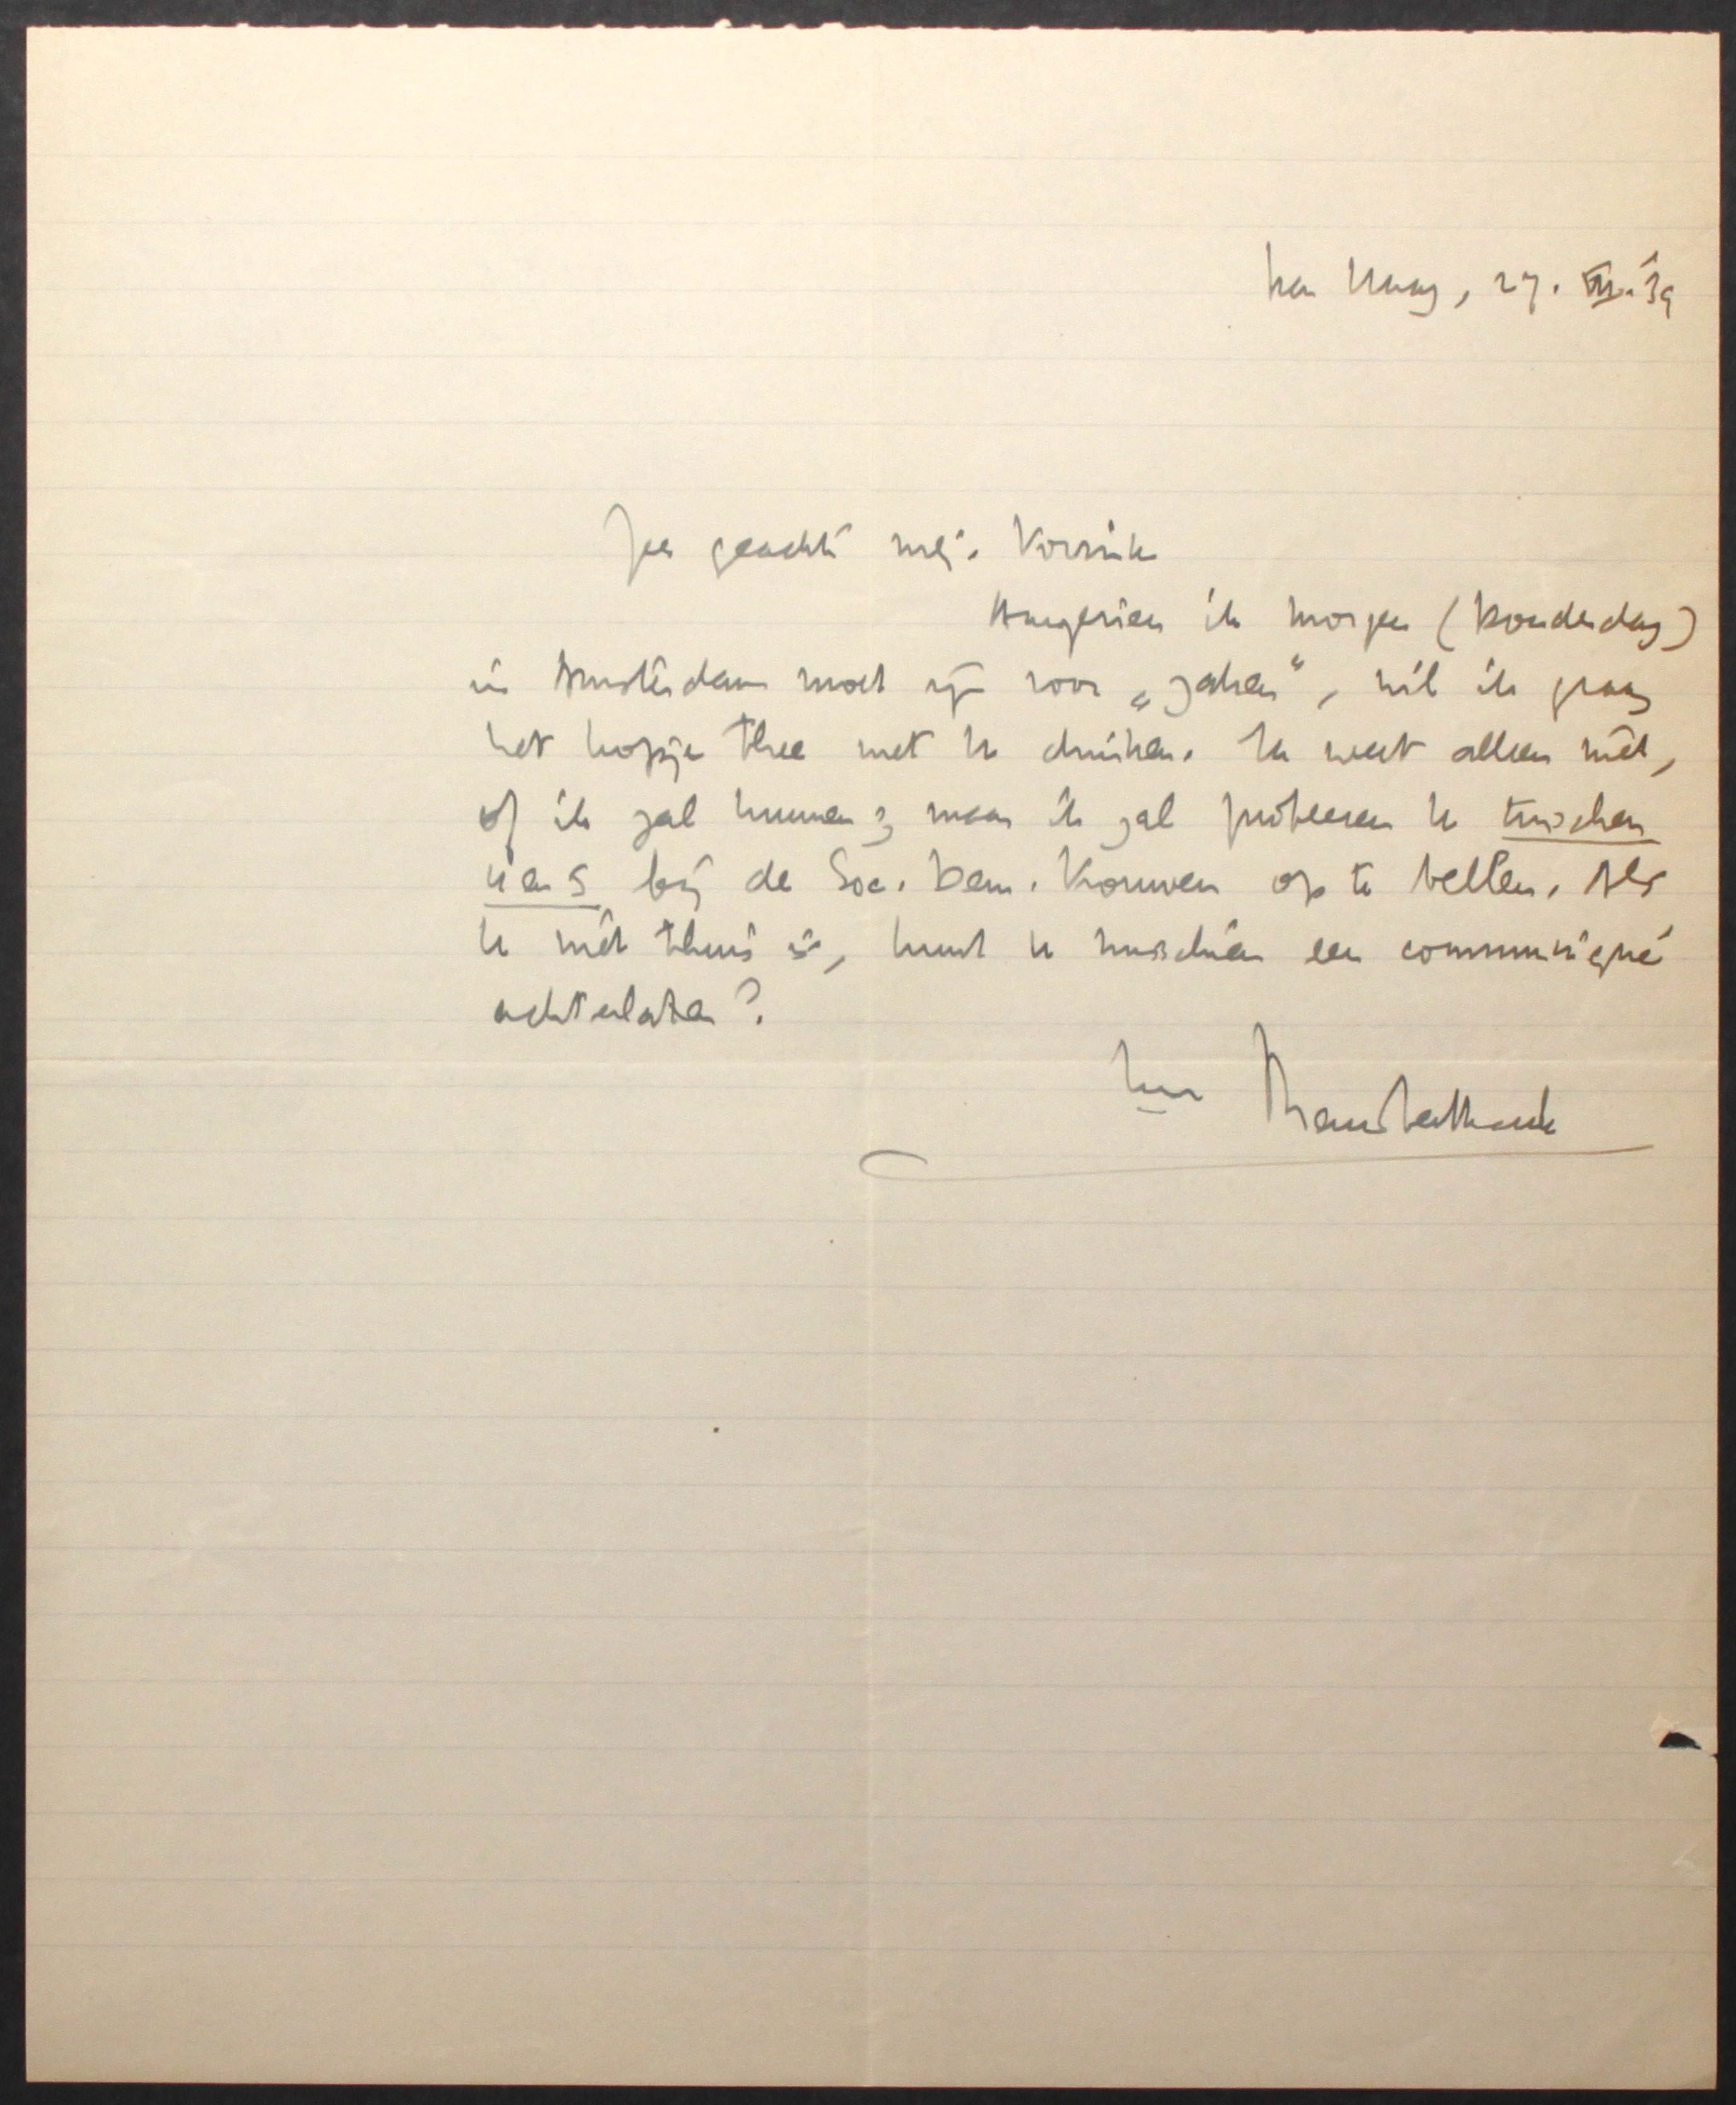 Den Haag, 27. XII. '39
Zeer geachte mej. Vorrink
Aangezien ik morgen (Donderdag)
in Amsterdam moet zijn voor „zaken", wil ik graag
het kopje thee met U drinken. Ik weet alleen niet,
of ik zal kunnen; maar ik zal probeeren U tusschen
4 en 5 bij de Soc. Dem. Vrouwen op te bellen. Als
U niet thuis is, kunt U misschien een communiqué
achterlaten?
Uw MennoterBraak